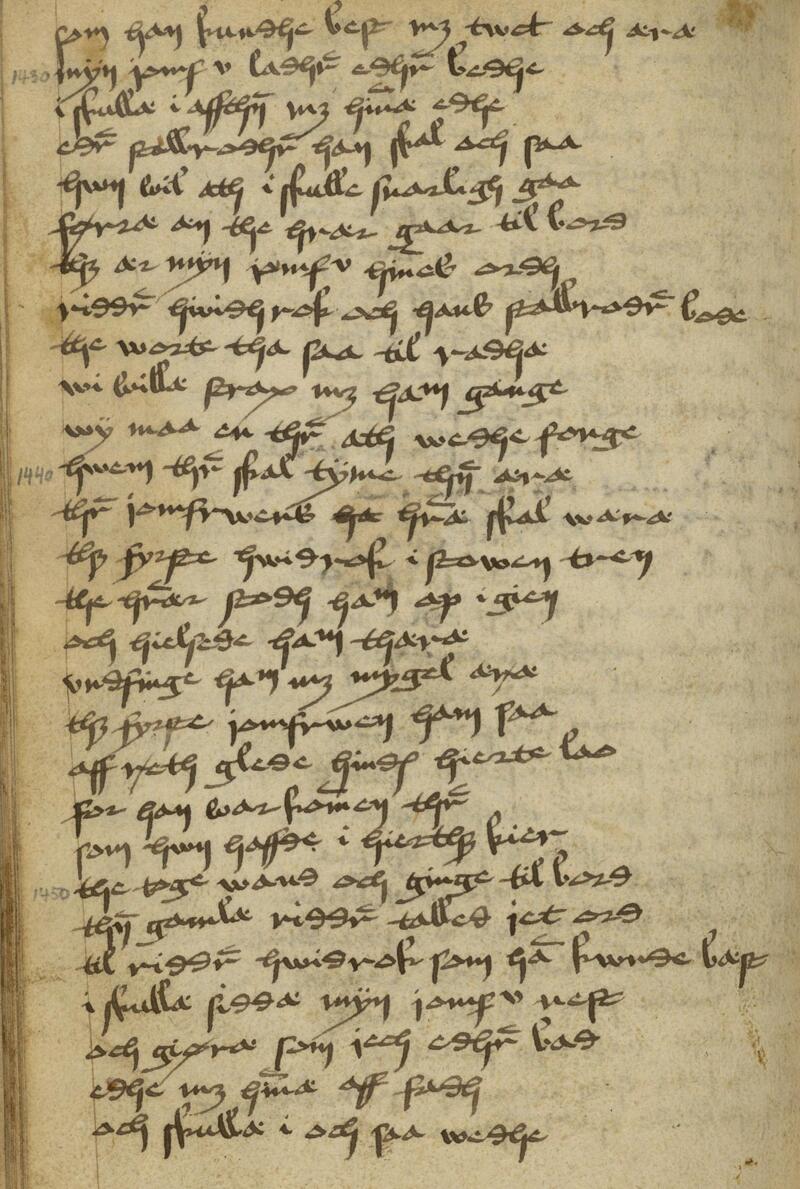 som han kundhe best mꝫ twct och æræ
1430 myn jomfv ladhr̄ edhr̄ bedhe
i skullæ i affthn̄ mꝫ hīnæ edhe
edr̄ stalbrodhr̄ han skal och saa
hwn wil ath i skulle snarligh gaa
førræ æn the hrær gaar til bord
thꝫ ær myn jomfv hīnes ordh
riddr̄ hwidhrok och hans stalbrodr̄ bode
the worte tha saa til radhæ
wi willæ strax mꝫ ham gange
wy maa en thr̄ ath wedhe fonge
1440 hwem thr̄ skal tyme thn̄ æræ
thr̄ jomfrwens hr̄æ skal waræ
thꝫ fyrste hwidrok i stowen tren
the hr̄ær stodh ham op i gien
och hielsede ham thæræ
vndfinge ham mꝫ mygel æræ
thꝫ fyrste jomfrwen ham saa
aff ræth glede hindꝭ hierte lao
for han war kom̄en thr̄
som hwn haffde i hierthꝫ kier
1450 the toge wand och ginge til bord
thn̄ gamlæ riddr̄ talled jet ord
til riddr̄ hwidrok som hā kwnde bæst
i skullæ siddæ myn jomfv nest
och giøræ som jech edhr̄ bad
edhe mꝫ hīnæ aff fadh
och skullæ i och saa wedhe